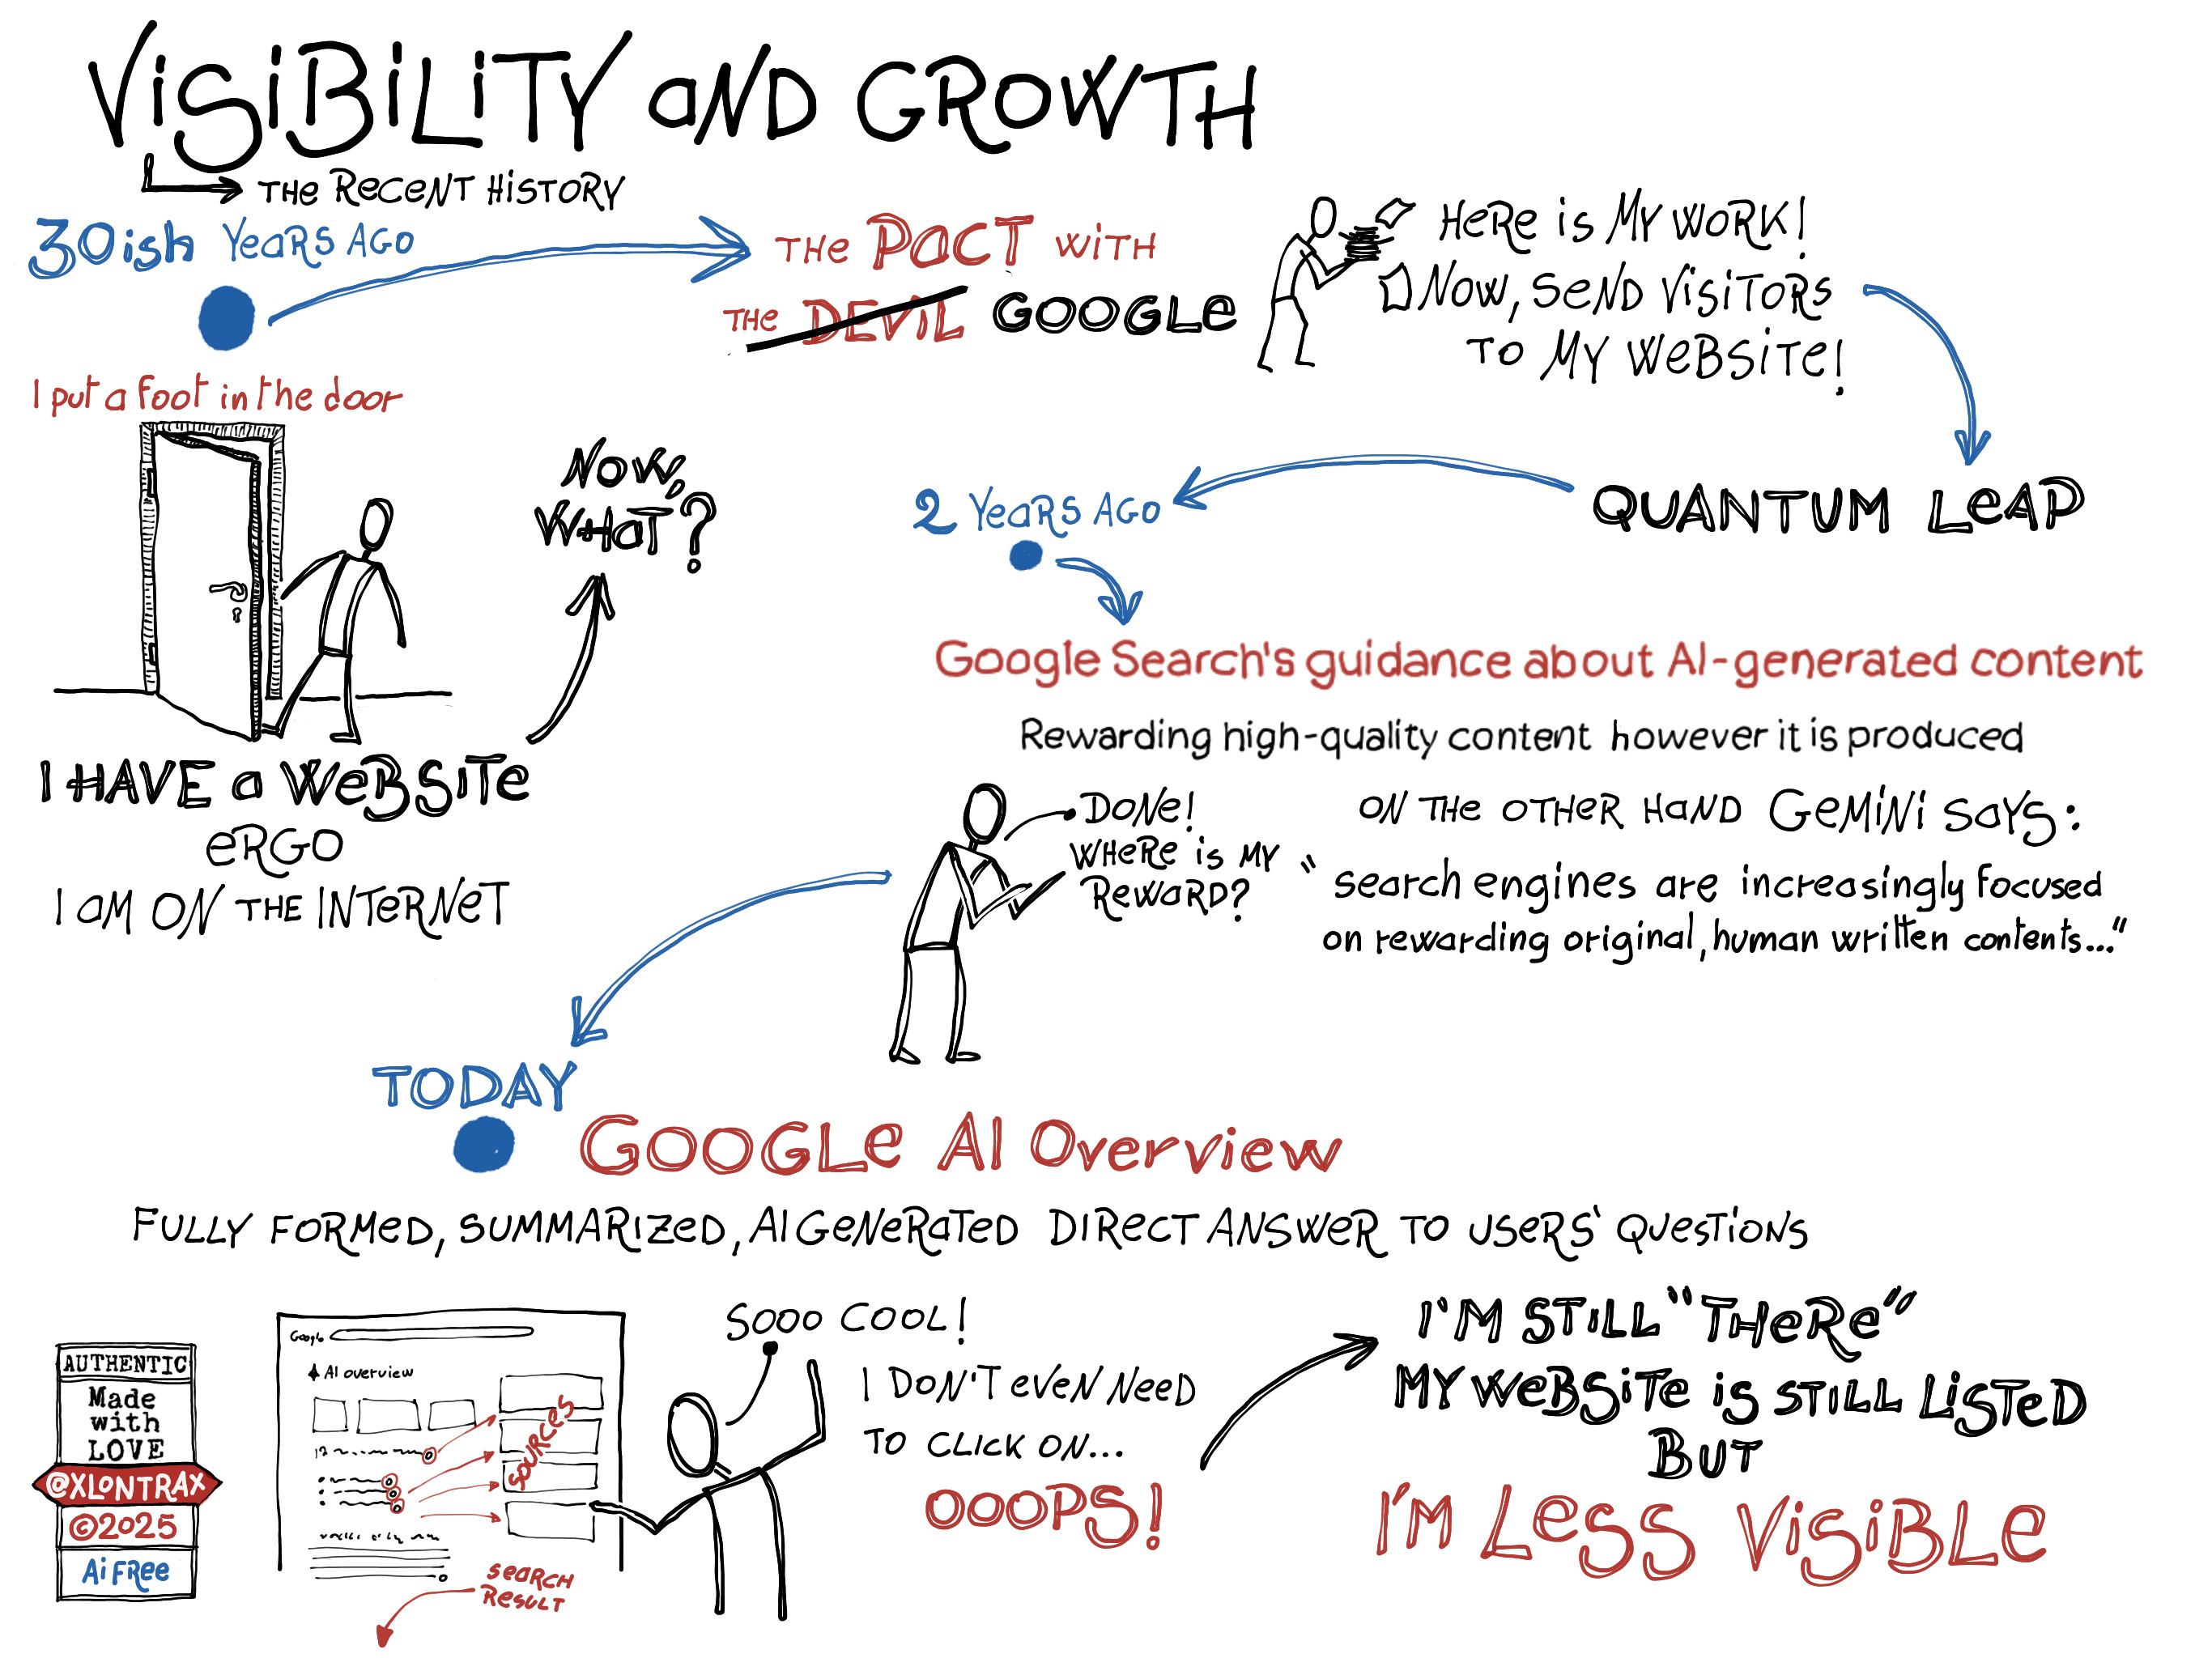 VISIBILITY AND GROWTH
THE RECENT HISTORY
30ish YEARS AGO
I put a foot in the door
NOW,
WHAT?
I HAVE a WEBSITE
ERGO
I AM ON THE INTERNET
THE PACT WITH
THE DEVIL GOOGLE
HERE is MY WORK!
NOW, SEND VISITORS
TO MY WEBSITE!
QUANTUM LEAP
2 YEARS AGO
Google Search's guidance about AI-generated content
Rewarding high-quality content however it is produced
DONE!
WHERE is MY
REWARD?
ON THE OTHER HAND GEMINI SAYS:
"search engines are increasingly focused
on rewarding original, human written contents..."
TODAY
GOOGLE AI Overview
FULLY FORMED, SUMMARIZED, AI GENERATED DIRECT ANSWER TO USERS' QUESTIONS
AUTHENTIC
Made
with
LOVE
@XLONTRAX
©2025
Ai FREE
Google
AI overview
SOURCES
SEARCH
RESULT
SOOO COOL!
I DON'T EVEN NEED
TO CLICK ON...
OOOPS!
I'M STILL "THERE"
MY WEBSITE is STILL LISTED
BUT
I'M LESS VISIBLE